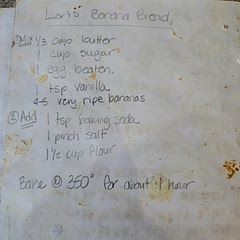 Lori's Banana Bread
① Mix 1/3 cup butter
1 cup sugar
1 egg beaten.
1 tsp vanilla
4-5 very ripe bananas
② Add 1 tsp baking soda
1 pinch salt
1 1/2 cup flour
Bake @ 350° for about 1 hour